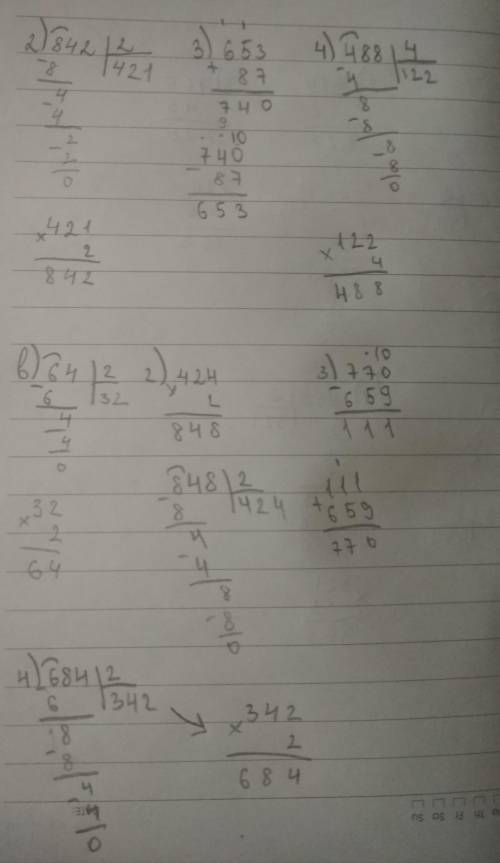 2) 842 | 2
- 8 | 421
- 4
4
- 2
2
0
× 421
2
842
3) 653
+ 87
740
9
10
740
- 87
653
4) 488 | 4
- 4 | 122
8
- 8
- 8
8
0
× 122
4
488
в) 64 | 2
- 6 | 32
4
- 4
0
× 32
2
64
2) × 424
2
848
- 848 | 2
8 | 424
4
- 4
8
- 8
0
10
3) 770
- 659
111
1
111
+ 659
770
4) - 684 | 2
6 | 342
8
- 8
- 4
4
0
→ × 342
2
684
Su Sa Fr Th